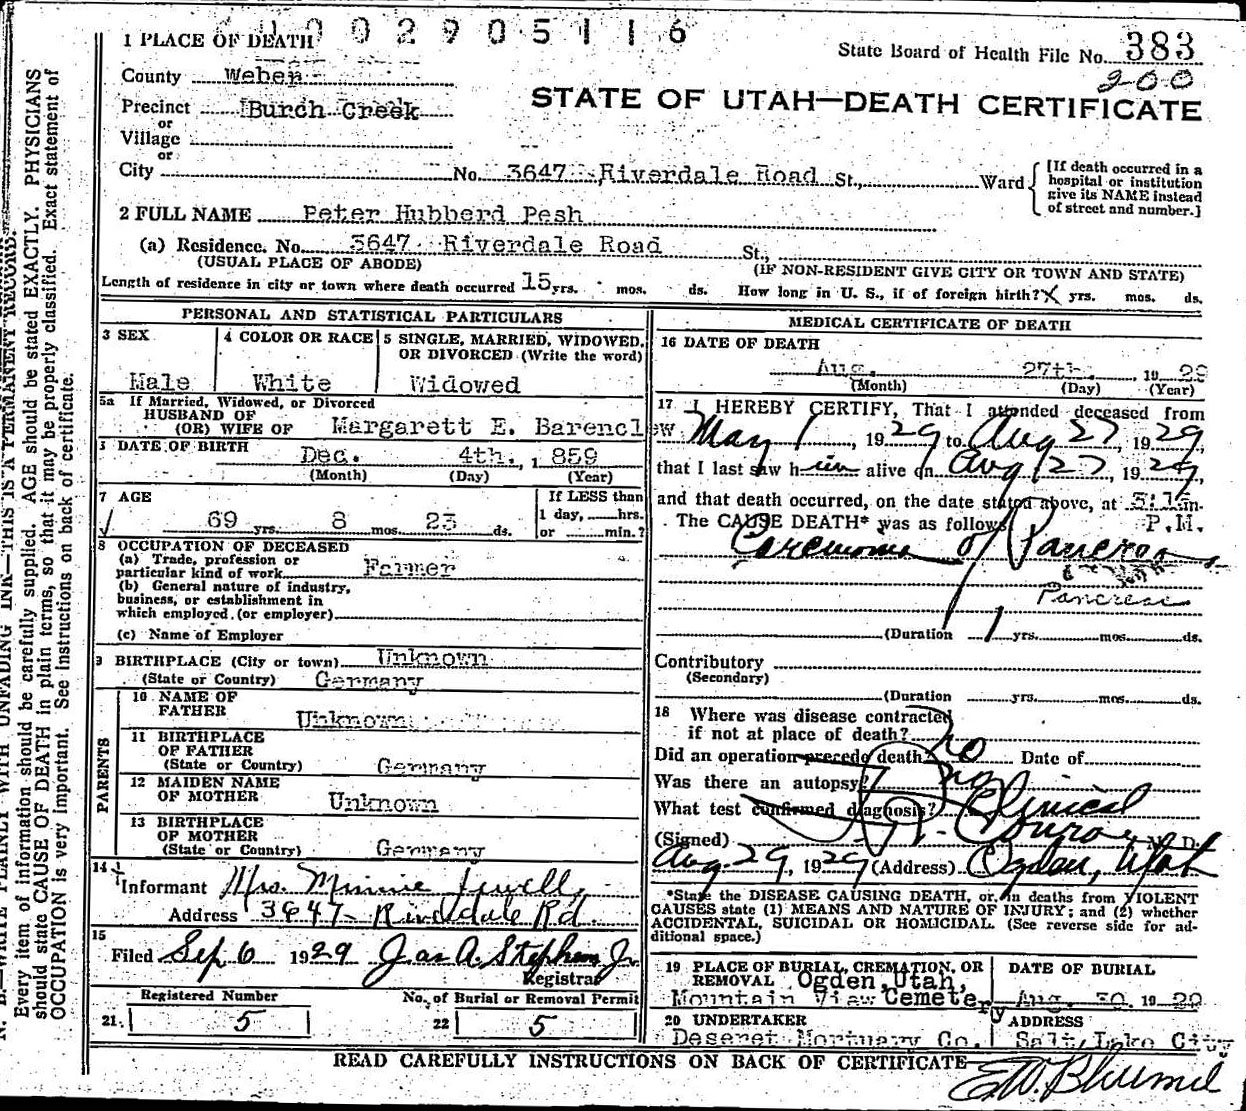 1 0 0 2 9 0 5 1 1 6
1 PLACE OF DEATH
State Board of Health File No. 383
200
County Weber
STATE OF UTAH—DEATH CERTIFICATE
Precinct Burch Creek
or
Village
or
City No. 3647 Riverdale Road St., Ward
[If death occurred in a hospital or institution give its NAME instead of street and number.]
2 FULL NAME Peter Hubberd Pesh
(a) Residence. No. 3647 Riverdale Road St.,
(USUAL PLACE OF ABODE) (IF NON-RESIDENT GIVE CITY OR TOWN AND STATE)
Length of residence in city or town where death occurred 15 yrs. mos. ds. How long in U. S., if of foreign birth? X yrs. mos. ds.
PERSONAL AND STATISTICAL PARTICULARS
3 SEX
Male
4 COLOR OR RACE
White
5 SINGLE, MARRIED, WIDOWED, OR DIVORCED (Write the word)
Widowed
5a If Married, Widowed, or Divorced
HUSBAND OF
(OR) WIFE OF Margarett E. Barenclew
DATE OF BIRTH Dec. 4th. 1859
(Month) (Day) (Year)
7 AGE
69 yrs. 8 mos. 23 ds.
If LESS than
1 day, hrs.
or min.?
8 OCCUPATION OF DECEASED
(a) Trade, profession or
particular kind of work Farmer
(b) General nature of industry,
business, or establishment in
which employed (or employer)
(c) Name of Employer
9 BIRTHPLACE (City or town) Unknown
(State or Country) Germany
PARENTS
10 NAME OF
FATHER Unknown
11 BIRTHPLACE
OF FATHER
(State or Country) Germany
12 MAIDEN NAME
OF MOTHER Unknown
13 BIRTHPLACE
OF MOTHER
(State or Country) Germany
14
Informant Mrs. Minnie Jewell,
Address 3647 Riverdale Rd.
15
Filed Sep 6 1929 Jas A. Stephens Jr.
Registrar
Registered Number
21. 5
No. of Burial or Removal Permit
22 5
MEDICAL CERTIFICATE OF DEATH
16 DATE OF DEATH
Aug. 27th. 1929
(Month) (Day) (Year)
17 I HEREBY CERTIFY, That I attended deceased from
May 1, 1929 to Aug 27, 1929
that I last saw him alive on Aug 27, 1929,
and that death occurred, on the date stated above, at 5:15 m.
P.M.
The CAUSE DEATH* was as follows
Carcinoma of Pancreas
Pancreas
(Duration 1 yrs. mos. ds.
Contributory
(Secondary)
(Duration yrs. mos. ds.
18 Where was disease contracted
if not at place of death?
Did an operation precede death? no Date of
Was there an autopsy? no
What test confirmed diagnosis? Clinical
(Signed) Conroy M. D.
Aug. 29, 1929 (Address) Ogden, Utah
*State the DISEASE CAUSING DEATH, or, in deaths from VIOLENT
CAUSES state (1) MEANS AND NATURE OF INJURY; and (2) whether
ACCIDENTAL, SUICIDAL OR HOMICIDAL. (See reverse side for additional space.)
19 PLACE OF BURIAL, CREMATION, OR
REMOVAL Ogden, Utah,
Mountain View Cemetery
DATE OF BURIAL
Aug. 30 1929
20 UNDERTAKER
Deseret Mortuary Co.
ADDRESS
Salt Lake City
READ CAREFULLY INSTRUCTIONS ON BACK OF CERTIFICATE
N. B.—WRITE PLAINLY WITH UNFADING INK—THIS IS A PERMANENT RECORD.
Every item of information should be carefully supplied. AGE should be stated EXACTLY. PHYSICIANS
should state CAUSE OF DEATH in plain terms, so that it may be properly classified. Exact statement of
OCCUPATION is very important. See Instructions on back of certificate.